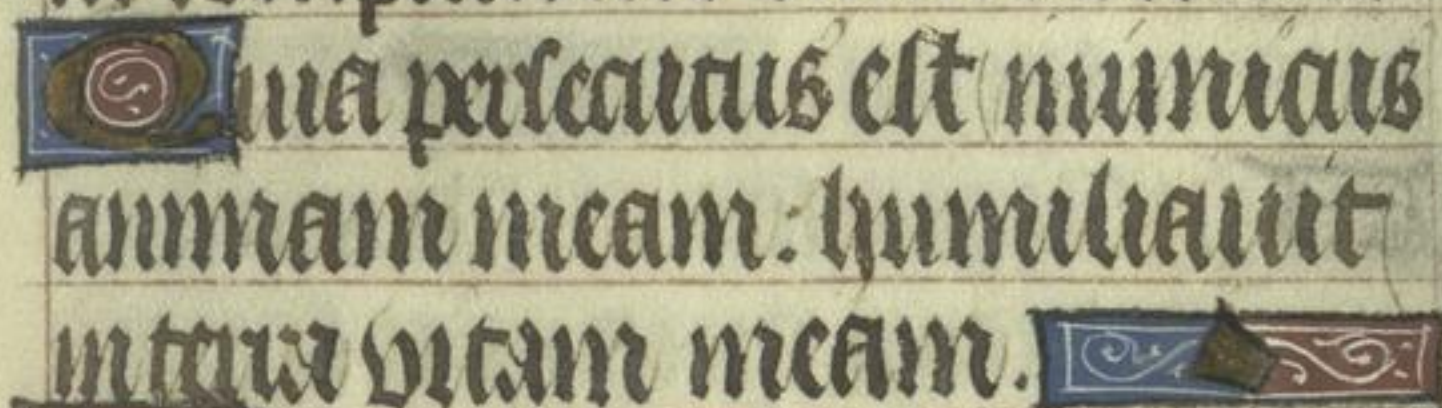 Quia persecutus est inimicus
animam meam: humiliavit
in terra vitam meam.